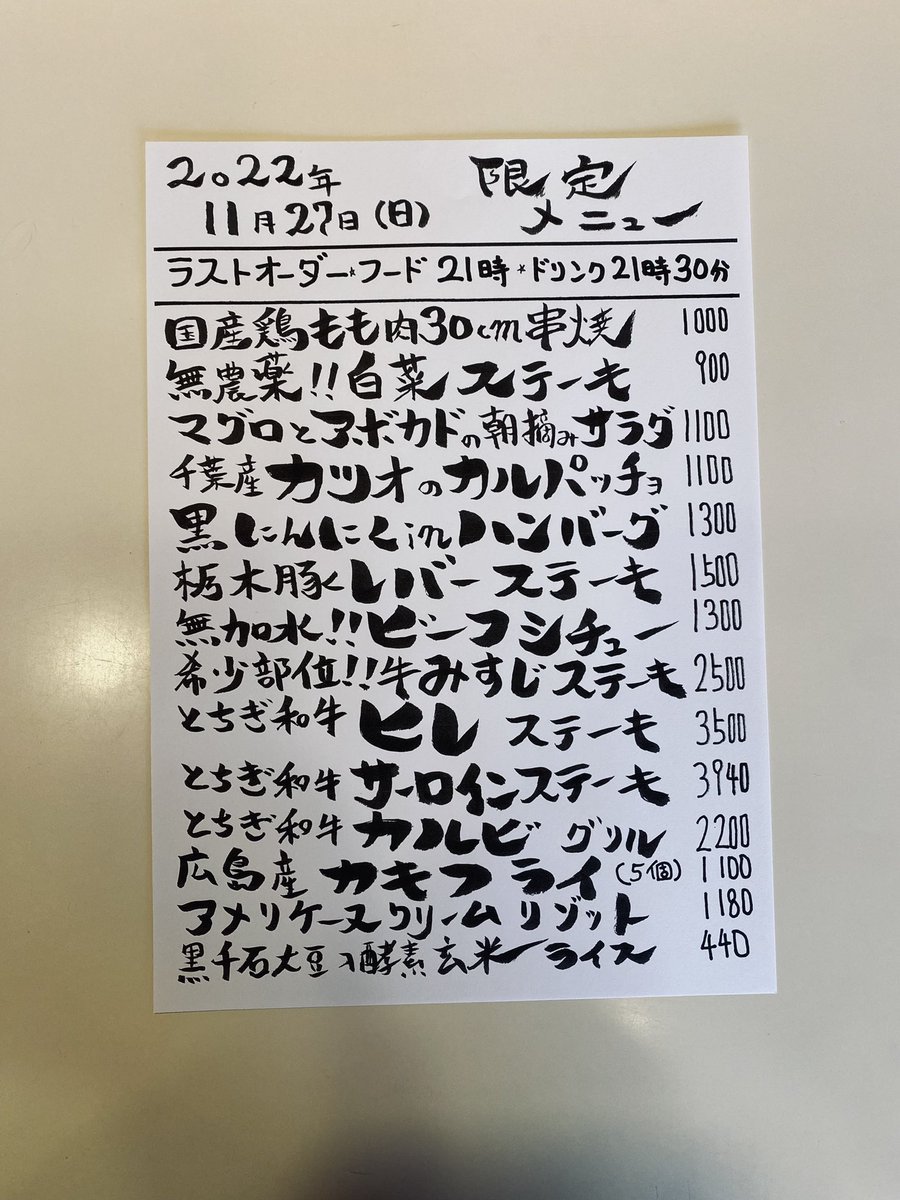 2022年 限定
11月27日(日) メニュー
ラストオーダー*フード 21時*ドリンク21時30分
国産鶏もも肉30cm串焼 1000
無農薬!!白菜ステーキ 900
マグロとアボカドの朝摘みサラダ 1100
千葉産カツオのカルパッチョ 1100
黒にんにくinハンバーグ 1300
栃木豚レバーステーキ 1500
無加水!!ビーフシチュー 1300
希少部位!!牛みすじステーキ 2500
とちぎ和牛ヒレステーキ 3500
とちぎ和牛サーロインステーキ 3940
とちぎ和牛カルビグリル 2200
広島産カキフライ(5個) 1100
アメリケーヌクリームリゾット 1180
黒千石大豆入酵素玄米ライス 440